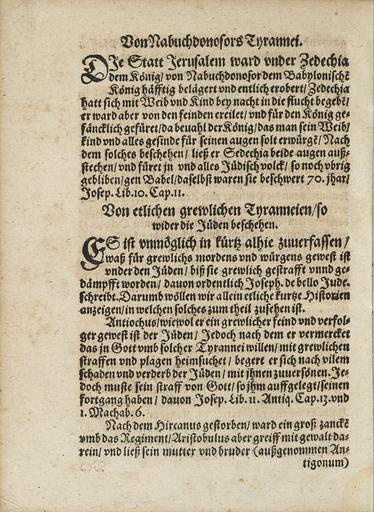 Von Nabuchdonosors Tyrannei.
DJe Statt Jerusalem ward vnder Zedechia
dem König/ von Nabuchdonosor dem Babylonischē
König häfftig belägert vnd entlich erobert/ Zedechia
hatt sich mit Weib vnd Kind bey nacht in die flucht begebē/
er ward aber von den feinden ereilet/ vnd für den König ge-
fäncklich gefüret/ da beuahl der König/ das man sein Weib/
kind vnd alles gesinde für seinen augen solt erwürgē/ Nach
dem solches beschehen/ ließ er Sedechia beide augen auß-
stechen/ vnd füret jn vnd alles Jüdisch volck/ so noch vbrig
gebliben/ gen Babel/ daselbst waren sie beschwert 70. jhar/
Josep. Lib. 10. Cap. 11.
Von etlichen grewlichen Tyranneien/ so
wider die Jüden beschehen.
ES ist vnmöglich in kürtz alhie zuuerfassen/
waß für grewlichs mordens vnd würgens gewest ist
vnder den Jüden/ biß sie grewlich gestrafft vnnd ge-
dämpfft worden/ dauon ordentlich Joseph. de bello Jude.
schreibt. Darumb wöllen wir allein etliche kurtze Historien
anzeigen/ in welchen solches zum theil zusehen ist.
Antiochus/ wiewol er ein grewlicher feind vnd verfol-
ger gewest ist der Jüden/ Jedoch nach dem er vermercket
das jn Gott vmb solcher Tyrannei willen/ mit grewlichen
straffen vnd plagen heimsuchet/ begert er sich nach vilem
schaden vnd verderb der Jüden/ mit jhnen zuuersönen. Je-
doch muste sein straff von Gott/ so jhm auffgelegt/ seinen
fortgang haben/ dauon Josep. Lib. 11. Antiq. Cap. 13. vnd
1. Machab. 6.
Nach dem Hircanus gestorben/ ward ein groß zanckē
vmb das Regiment/ Aristobulus aber greiff mit gewalt da-
rein/ vnd ließ sein mutter vnd bruder (außgenommen An-
tigonum)